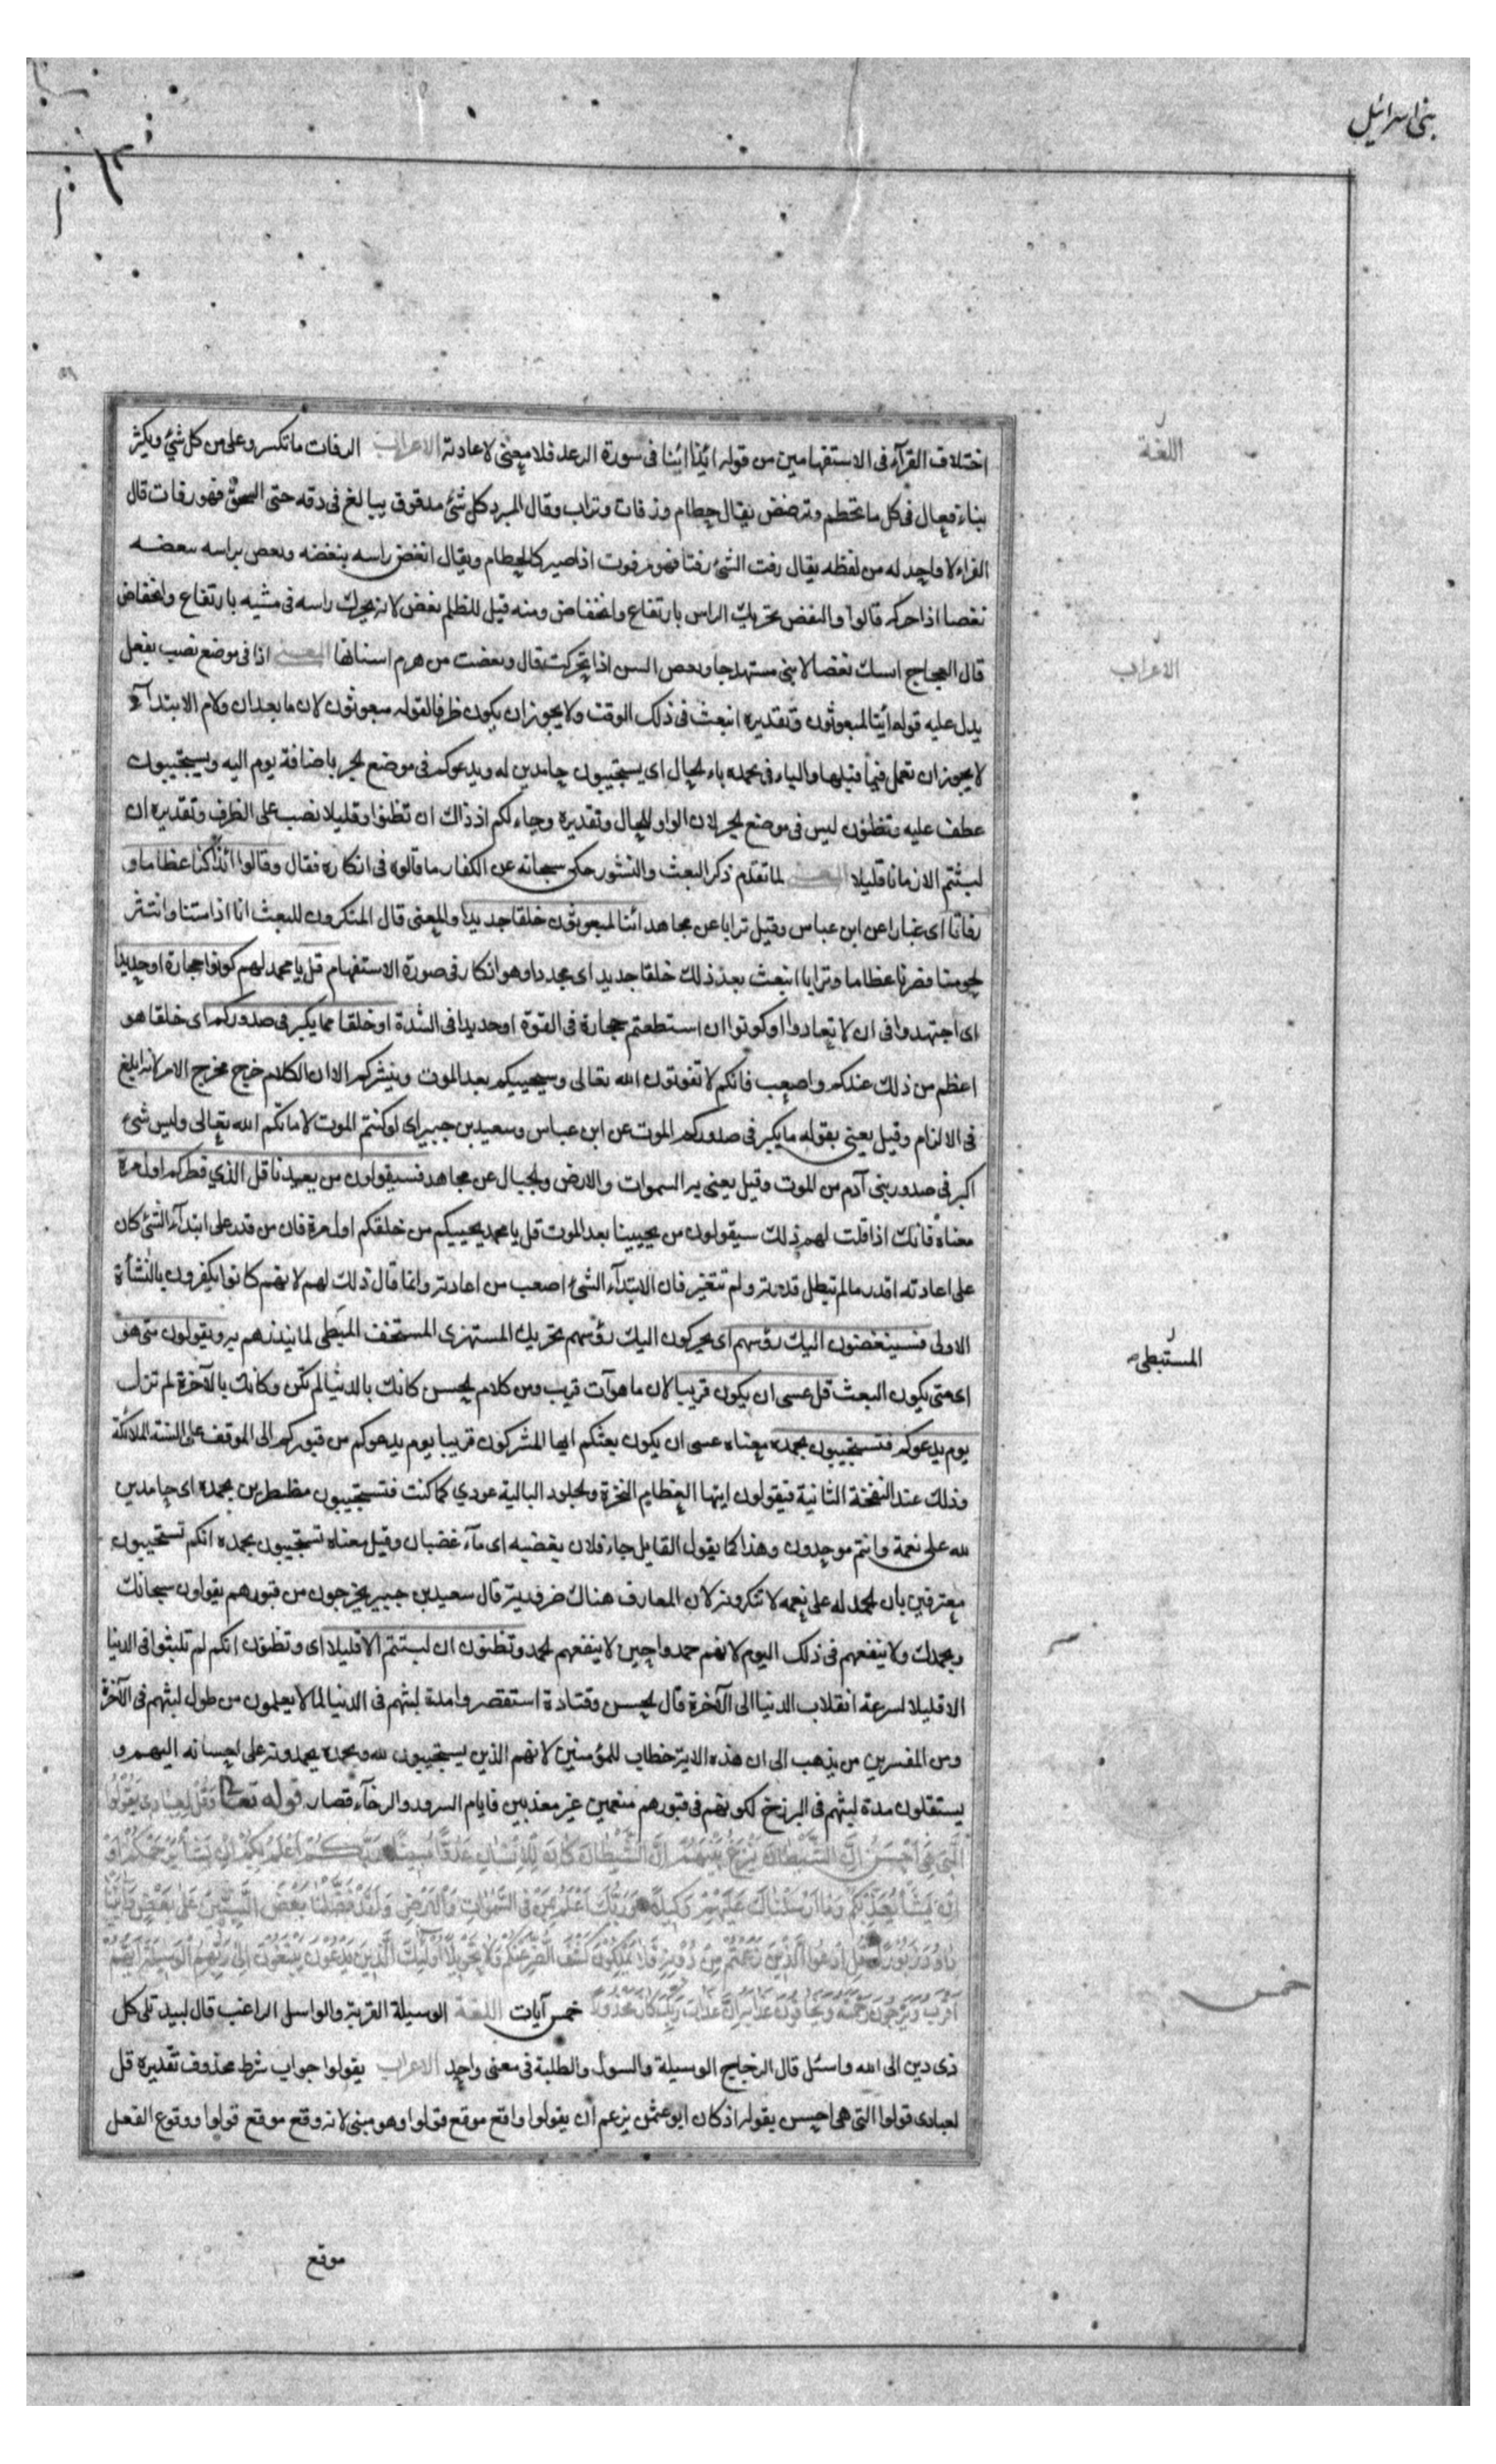 بنی اسرائیل
اختلاف القرآء فی الاستفهامین من قوله ائذا ائنا فی سورة الرعد فلا معنی لاعادته الاعراب الرفات ما تکسر وبلی من کل شیٔ ویکثر
اللغة
بناء فعال فی کل ما یحطم ویترضض یقال حطام ورفات وتراب وقال المبرد کل شیٔ مدقوق یبالغ فی دقه حتی انسحق فهو رفات قال
الفراء لا واحد له من لفظه یقال رفت الشیٔ رفتا فهو مرفوت اذا صیر کالحطام ویقال انغض راسه ینغضه ونغض براسه ینغضه
نغضا اذا حرکه قالوا والنغض تحریك الراس بارتفاع وانخفاض ومنه قیل للظلیم نغض لانه یحرك راسه فی مشیه بارتفاع وانخفاض
قال العجاج اسك نغضا لا ینی مستهدجا ونغض السن اذا تحرکت قال ونغضت من هرم اسنانها المعنی اذا فی موضع نصب بفعل
الاعراب
یدل علیه قوله ائنا لمبعوثون وتقدیره انبعث فی ذلك الوقت ولا یجوز ان یکون ظرفا لقوله مبعوثون لان ما بعد ان ولام الابتدآء
لا یجوز ان تعمل فیما قبلها والباء فی بحمده باء الحال ای یستجیبون حامدین له ویدعوکم فی موضع الجر باضافة یوم الیه ویستجیبون
عطف علیه وتظنون لیس فی موضع الجر لان الواو للحال وتقدیره وحاء لکم اذ ذاك ان تظنوا وقلیلا نصب علی الظرف وتقدیره ان
لبثتم الا زمانا قلیلا المعنی لما تقدم ذکر البعث والنشور حکی سبحانه عن الکفار ما قالوه فی انکاره فقال وقالوا ائذا کنا عظاما و
رفاتا ای غبارا عن ابن عباس وقیل ترابا عن مجاهد ائنا لمبعوثون خلقا جدیدا والمعنی قال المنکرون للبعث انا اذا متنا وانتثر
لحومنا وصرنا عظاما وترابا انبعث بعد ذلك خلقا جدید ای مجددا وهو انکار فی صورة الاستفهام قل یا محمد لهم کونوا حجارة او حدیدا
ای اجتهدوا فی ان لا تعادوا وکونوا ان استطعتم حجارة فی القوة او حدیدا فی الشدة او خلقا مما یکبر فی صدورکم ای خلقا هو
اعظم من ذلك عندکم واصعب فانکم لا تفوتون الله تعالی وسیحییکم بعد الموت وینشرکم الا ان الکلام خرج مخرج الامر لانه ابلغ
فی الالزام وقیل یعنی بقوله ما یکبر فی صدورکم الموت عن ابن عباس وسعید بن جبیر ای لو کنتم الموت لاماتکم الله تعالی ولیس شیٔ
اکبر فی صدور بنی آدم من الموت وقیل یعنی به السموات والارض والجبال عن مجاهد فسیقولون من یعیدنا قل الذی فطرکم اول مرة
معناه فانك اذا قلت لهم ذلك سیقولون من یحیینا بعد الموت قل یا محمد یحییکم من خلقکم اول مرة فان من قدر علی ابتدآء الشیٔ کان
علی اعادته اقدر ما لم تبطل قدرته ولم تتغیر فان الابتدآء الشیٔ اصعب من اعادته وانما قال ذلك لهم لانهم کانوا یکفرون بالنشأة
الاولی فسینغضون الیك رؤسهم ای یحرکون الیك رؤسهم تحریك المستهزی المستخف المبطی لما ینذرهم به ویقولون متی هو
المستبطی
ای متی یکون البعث قل عسی ان یکون قریبا لان ما هو آت قریب ومن کلام الحسن کانك بالدنیا لم تکن وکانك بالآخرة لم تزل
یوم یدعوکم فتستجیبون بحمده معناه عسی ان یکون بعثکم ایها المشرکون قریبا یوم یدعوکم من قبورکم الی الموقف علی السنة الملائکة
وذلك عند النفخة الثانیة فیقولون ایتها العظام النخرة والجلود البالیة عودی کما کنت فتستجیبون مضطرین بحمده ای حامدین
لله علی نعمة وانتم موحدون وهذا کما یقول القایل جاء فلان بغضبه ای جآء غضبان وقیل معناه تستجیبون بحمده انکم تستجیبون
معترفین بان الحمد له علی نعمه لا تنکرونه لان المعارف هناك ضروریة قال سعید بن جبیر یخرجون من قبورهم یقولون سبحانك
وبحمدك ولا ینفعهم فی ذلك الیوم لانهم حمدوا حین لا ینفعهم الحمد وتظنون ان لبثتم الا قلیلا ای وتظنون انکم لم تلبثوا فی الدنیا
الا قلیلا لسرعة انقلاب الدنیا الی الآخرة قال الحسن وقتادة استقصروا مدة لبثهم فی الدنیا لما لا یعلمون من طول لبثهم فی الآخرة
ومن المفسرین من یذهب الی ان هذه الایة خطاب للمؤمنین لانهم الذین یستجیبون لله وبحمده یحمدونه علی احسانه الیهم و
یستقلون مدة لبثهم فی البرزخ لکونهم فی قبورهم منعمین غیر معذبین وایام السرور والرخآء قصار قوله تعالی وَقُلْ لِعِبَادِی یَقُولُوا
الَّتِی هِیَ اَحْسَنُ اِنَّ الشَّیْطَانَ یَنْزَغُ بَیْنَهُمْ اِنَّ الشَّیْطَانَ کَانَ لِلْاِنْسَانِ عَدُوًّا مُبِینًا رَبُّکُمْ اَعْلَمُ بِکُمْ اِنْ یَشَأْ یَرْحَمْکُمْ اَوْ
اِنْ یَشَأْ یُعَذِّبْکُمْ وَمَا اَرْسَلْنَاكَ عَلَیْهِمْ وَکِیلًا وَرَبُّكَ اَعْلَمُ بِمَنْ فِی السَّمٰوَاتِ وَالْاَرْضِ وَلَقَدْ فَضَّلْنَا بَعْضَ النَّبِیِّینَ عَلٰی بَعْضٍ وَآتَیْنَا
دَاوُدَ زَبُورًا قُلِ ادْعُوا الَّذِینَ زَعَمْتُمْ مِنْ دُونِهِ فَلَا یَمْلِکُونَ کَشْفَ الضُّرِّ عَنْکُمْ وَلَا تَحْوِیلًا اُولٰئِكَ الَّذِینَ یَدْعُونَ یَبْتَغُونَ اِلٰی رَبِّهِمُ الْوَسِیلَةَ اَیُّهُمْ
اَقْرَبُ وَیَرْجُونَ رَحْمَتَهُ وَیَخَافُونَ عَذَابَهُ اِنَّ عَذَابَ رَبِّكَ کَانَ مَحْذُورًا خمس آیات اللغة الوسیلة القربة والواسل الراغب قال لبید بلی کل
خمس
ذی دین الی الله واسئل قال الزجاج الوسیلة والسؤل والطلبة فی معنی واحد الاعراب یقولوا جواب شرط محذوف تقدیره قل
لعبادی قولوا التی هی احسن یقولوا اذ کان ابو عثمن یزعم ان یقولوا واقع موقع قولوا وهو مبنی لانه وقع موقع قولوا ووقوع الفعل
موقع